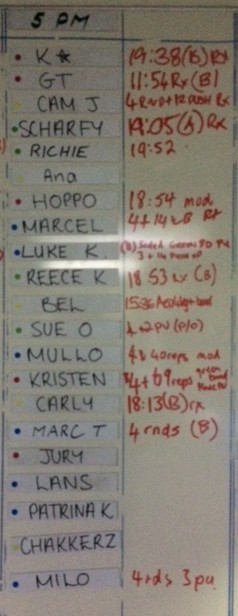 5 PM
K★ 19:38 (B) Rx
GT 11:54 Rx (B)
CAM J 4 Rnd + 12 PUSH Rx
SCHARFY 19:05 (A) Rx
RICHIE 19:52
Ana
HOPPO 18:54 mod
MARCEL 4+14 Rx
LUKE K. (B)
REECE K 18 53 rx (B)
BEL 15:36 band
SUE O 4+2 PU (P/O)
MULLO 40 reps mod
KRISTEN 4+69 reps green band
CARLY 18:13 (B) rx
MARC T 4 rnds (B)
JURY
LANS
PATRINA K
CHAKKERZ
MILO 4 rds 3 pu